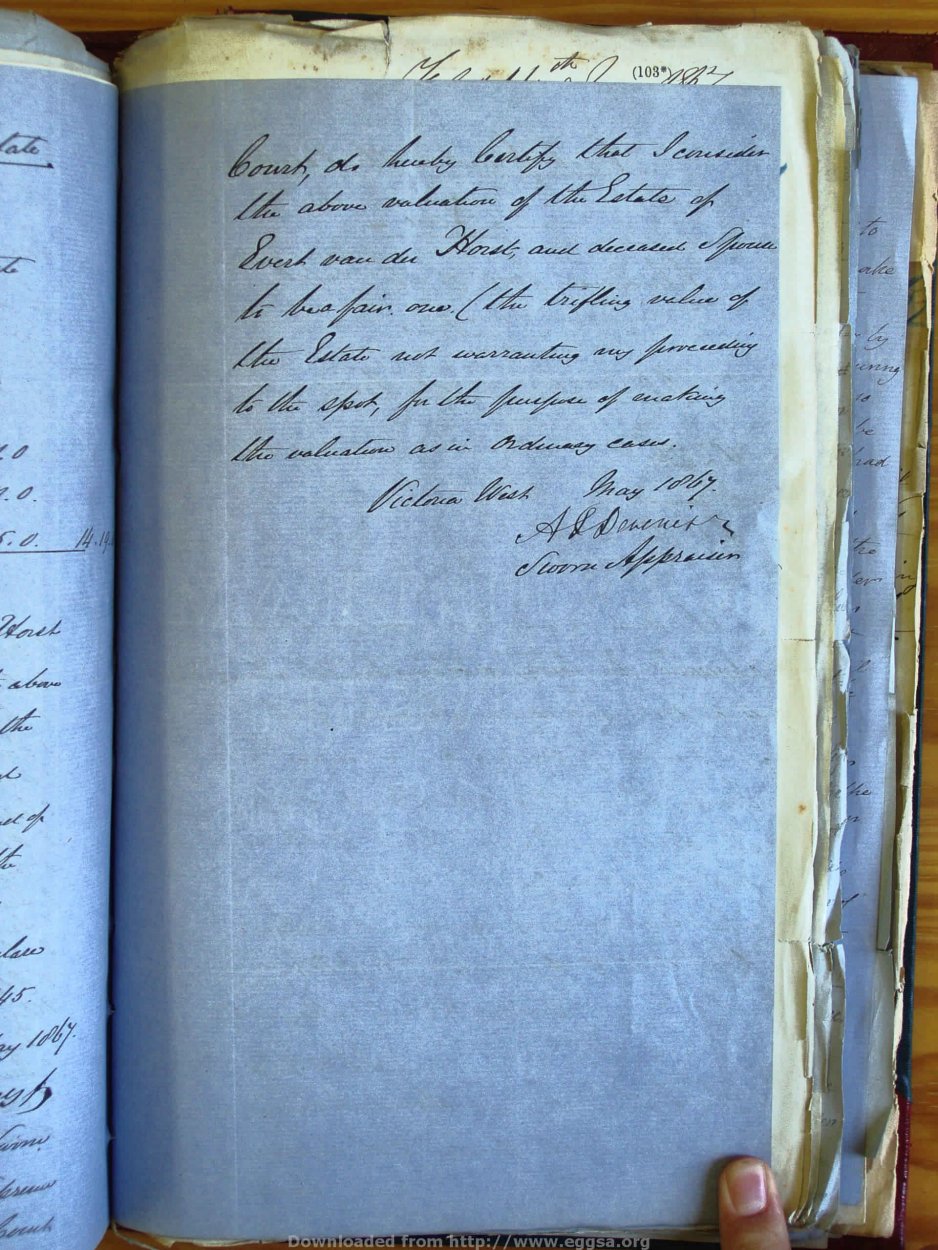 (103*)
Court, do hereby Certify that I consider
the above valuation of the Estate of
Evert van der Horst, and deceased Spouse
to be a fair one (the trifling value of
the Estate not warranting my proceeding
to the spot, for the purpose of making
the valuation as in ordinary cases.
Victoria West May 1867.
A E Devenish
Sworn Appraiser
14.19
Horst
above
the
45.
1867.
Downloaded from http://www.eggsa.org